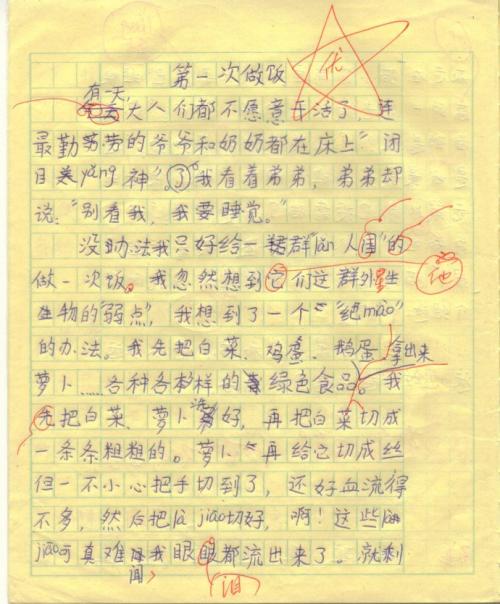 优
第一次做饭
有一天,
大人们都不愿意干活了，连
最勤劳的爷爷和奶奶都在床上"闭
目养yǎng神"。了我看着弟弟，弟弟却
说："别看我，我要睡觉。"
没办法我只好给一群"lǎn人国"的
做一次饭。我忽然想到它们这群外星
他
生物的"弱点"，我想到了一个"绝mào"
的办法。我先把白菜、鸡蛋、鹅蛋、拿出来
萝卜……各种各样的绿色食品。我
先把白菜、萝卜洗好，再把白菜切成
一条条粗粗的。萝卜再给它切成丝
但一不小心把手切到了，还好血流得
不多，然后把là jiāo切好，啊！这些là
jiāo可真难闻我眼眼都流出来了。就剩
泪